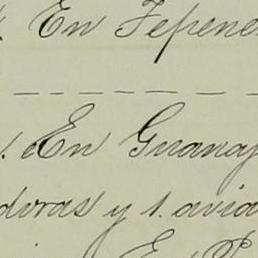 En Tepene
1. En Guanaj
doras y 1. avia